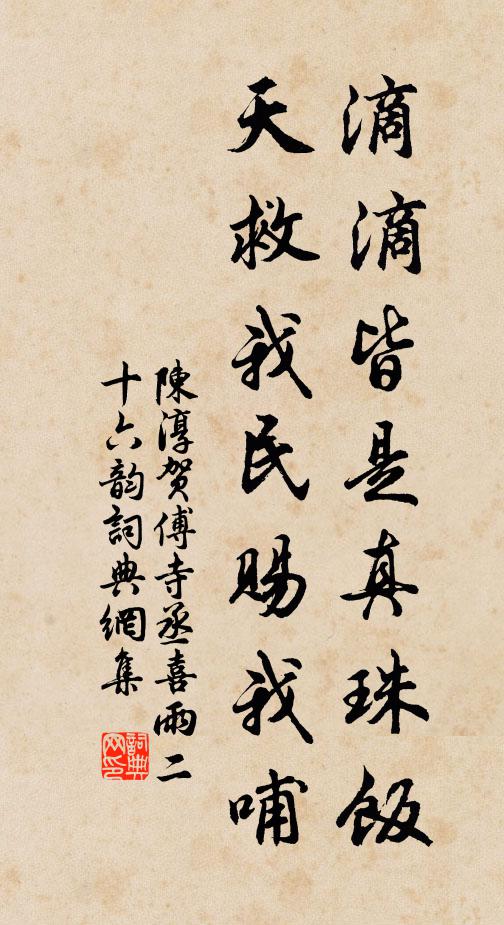 滴滴皆是真珠飯
天救我民賜我哺
陳淳贺傅寺丞喜雨二
十六韵詞典網集
詞典
网印